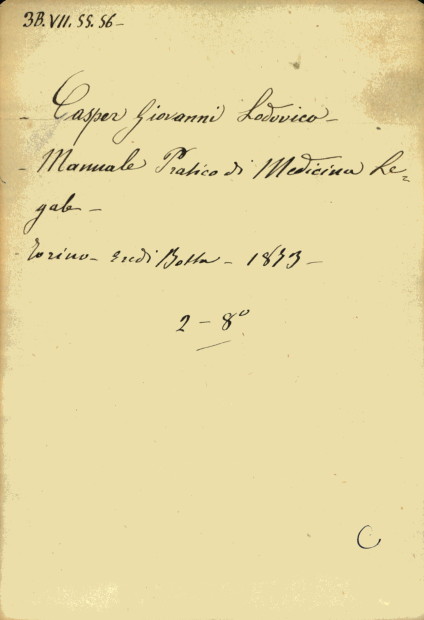 3B. VII. 55. 56 –
– Casper Giovanni Lodovico –
– Manuale Pratico di Medicina Le=
gale –
– Torino – Eredi Botta – 1873 –
2 – 8º
C